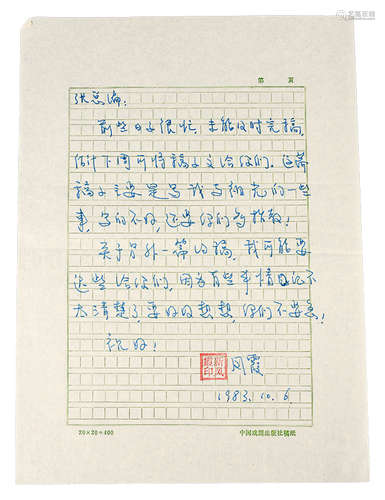 第 页
张总编:
前些日子很忙,未能及时完稿,
估计下周可将稿子交给你们。这篇
稿子主要是写我与祖光的一些
事,写的不好,还要你们多指教!
关于另外一篇的稿,我可能要
迟些给你们,因为有些事情回忆不
太清楚了,要好好想想,你们不要急!
祝好!
新凤霞印
凤霞
1983.10.6.
20×20=400
中国戏剧出版社稿纸